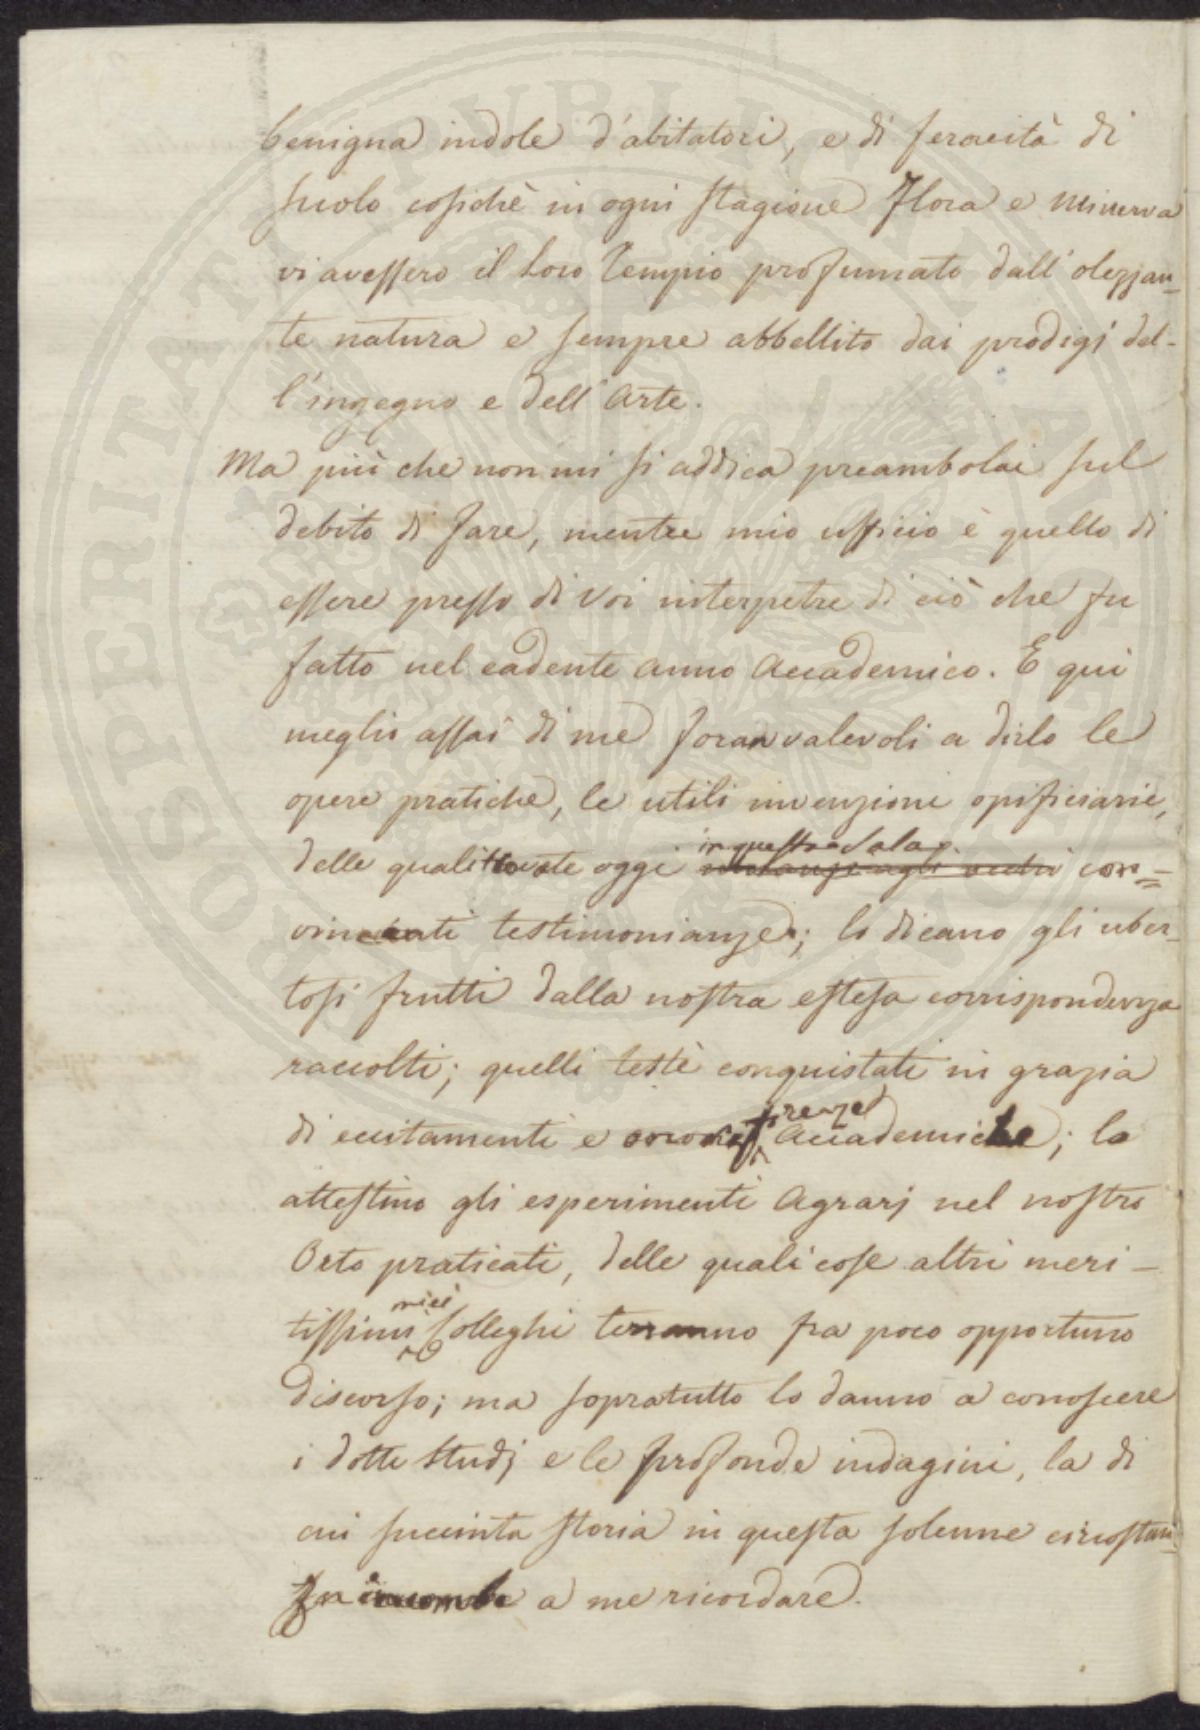 benigna indole d'abitatori, e di feracità di
suolo cosichè in ogni stagione Flora e Minerva
vi avessero il Loro Tempio profumato dall'olezzan-
te natura e sempre abbellito dai prodigi del-
l'ingegno e dell'Arte.
Ma più che non mi si addica preambolai sul
debito di fare, mentre mio ufficio è quello di
essere presso di Voi interpetre di ciò che fu
fatto nel cadente anno Accademico. E qui
meglio assai di me foran valevoli a dirlo le
opere pratiche, le utili invenzioni opificiarie,
in questa Sala
delle quali trovate oggi con-
vincenti testimonianze; lo dicano gli uber-
tosi frutti dalla nostra estesa corrispondenza
raccolti; quelli testè conquistati in grazia
di eccitamenti e Accademiche; lo
attestino gli esperimenti Agrarj nel nostro
Orto praticati, delle quali cose altri meri-
miei
tissimi Colleghi terranno fra poco opportuno
discorso; ma sopratutto lo danno a conoscere
i dotti Studj e le profonde indagini, la di
cui succinta storia in questa solenne circostan-
za incombe a me ricordare.
PROSPERITATI PUBLICAE